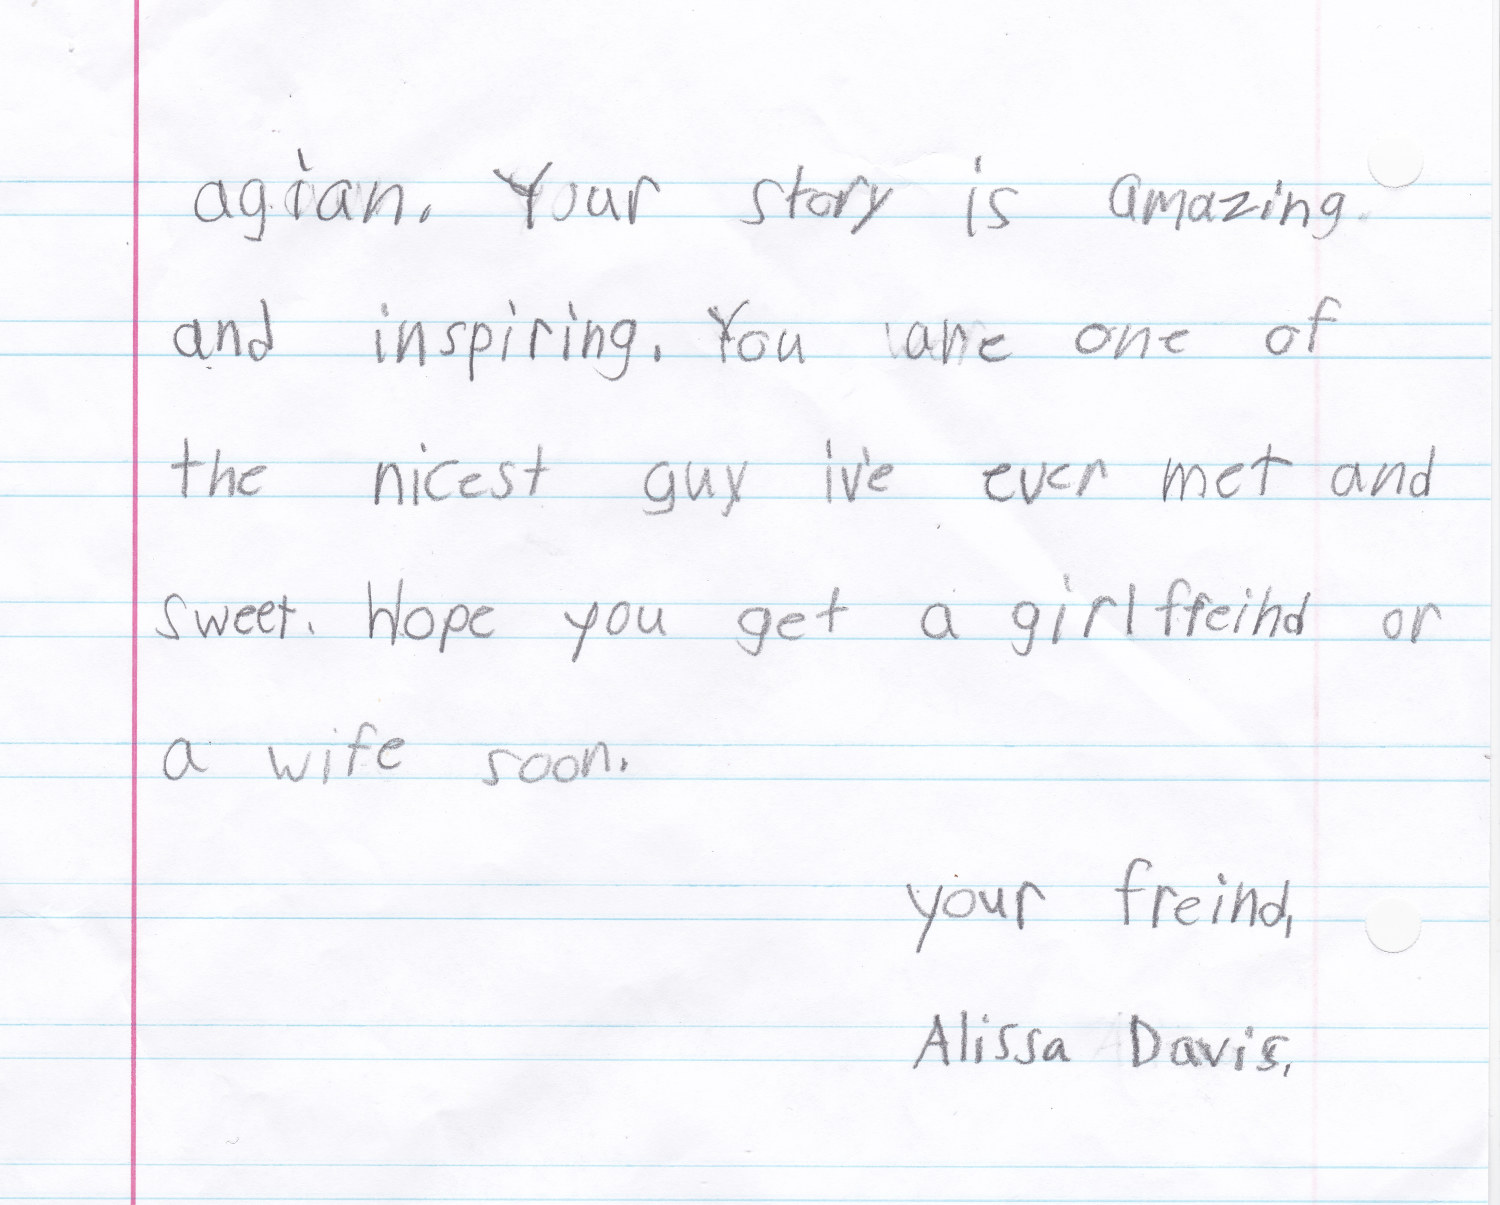 agian. Your story is amazing.
and inspiring. You are one of
the nicest guy iv'e ever met and
sweet. Hope you get a girlffeind or
a wife soon.
your freind,
Alissa Davis,